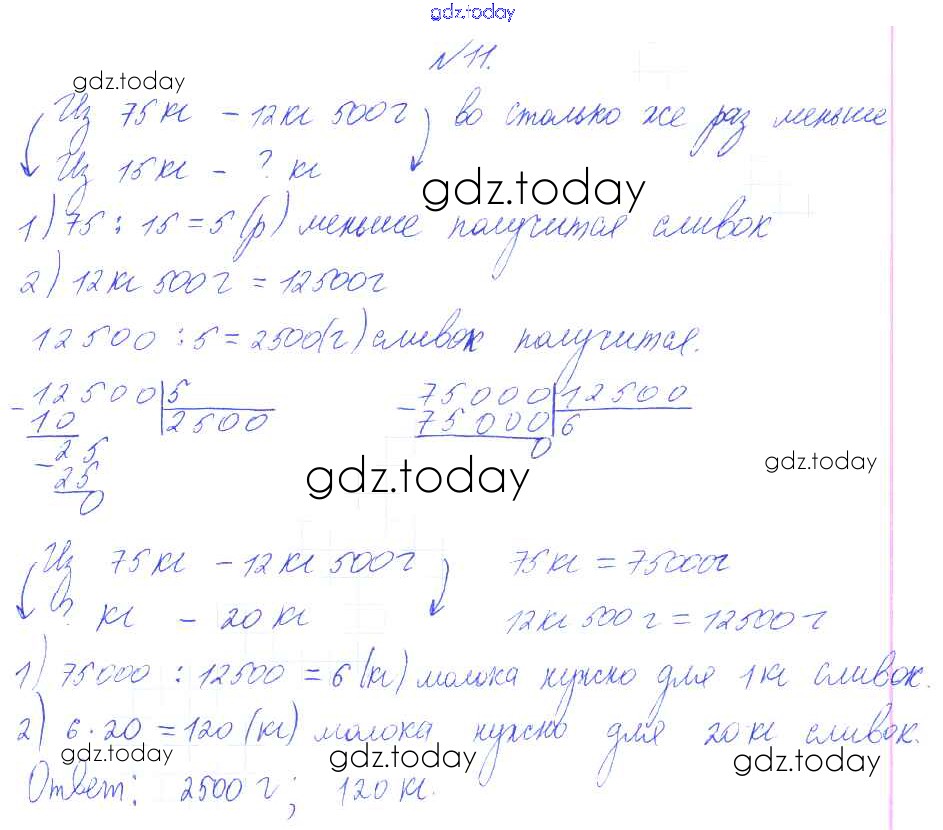 gdz.today
№11.
gdz.today
Из 75кг - 12кг 500г во столько же раз меньше
Из 15кг - ? кг
gdz.today
1) 75 : 15 = 5 (р) меньше получится сливок
2) 12кг 500г = 12500г
12500 : 5 = 2500(г) сливок получится.
- 12500 | 5 - 75000 | 12500
10 | 2500 75000 | 6
- 25 0
25
0
gdz.today
gdz.today
Из 75кг - 12кг 500г 75кг = 75000г
? кг - 20кг 12кг 500г = 12500г
1) 75000 : 12500 = 6 (кг) молока нужно для 1кг сливок.
2) 6 · 20 = 120 (кг) молока нужно для 20кг сливок.
gdz.today gdz.today gdz.today
Ответ: 2500г; 120кг.